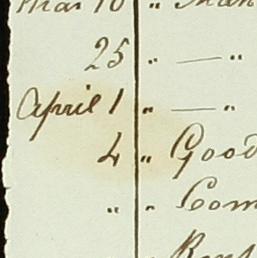 Mar 10 "
25 " — "
April 1 " — "
4 " Good
" " Com